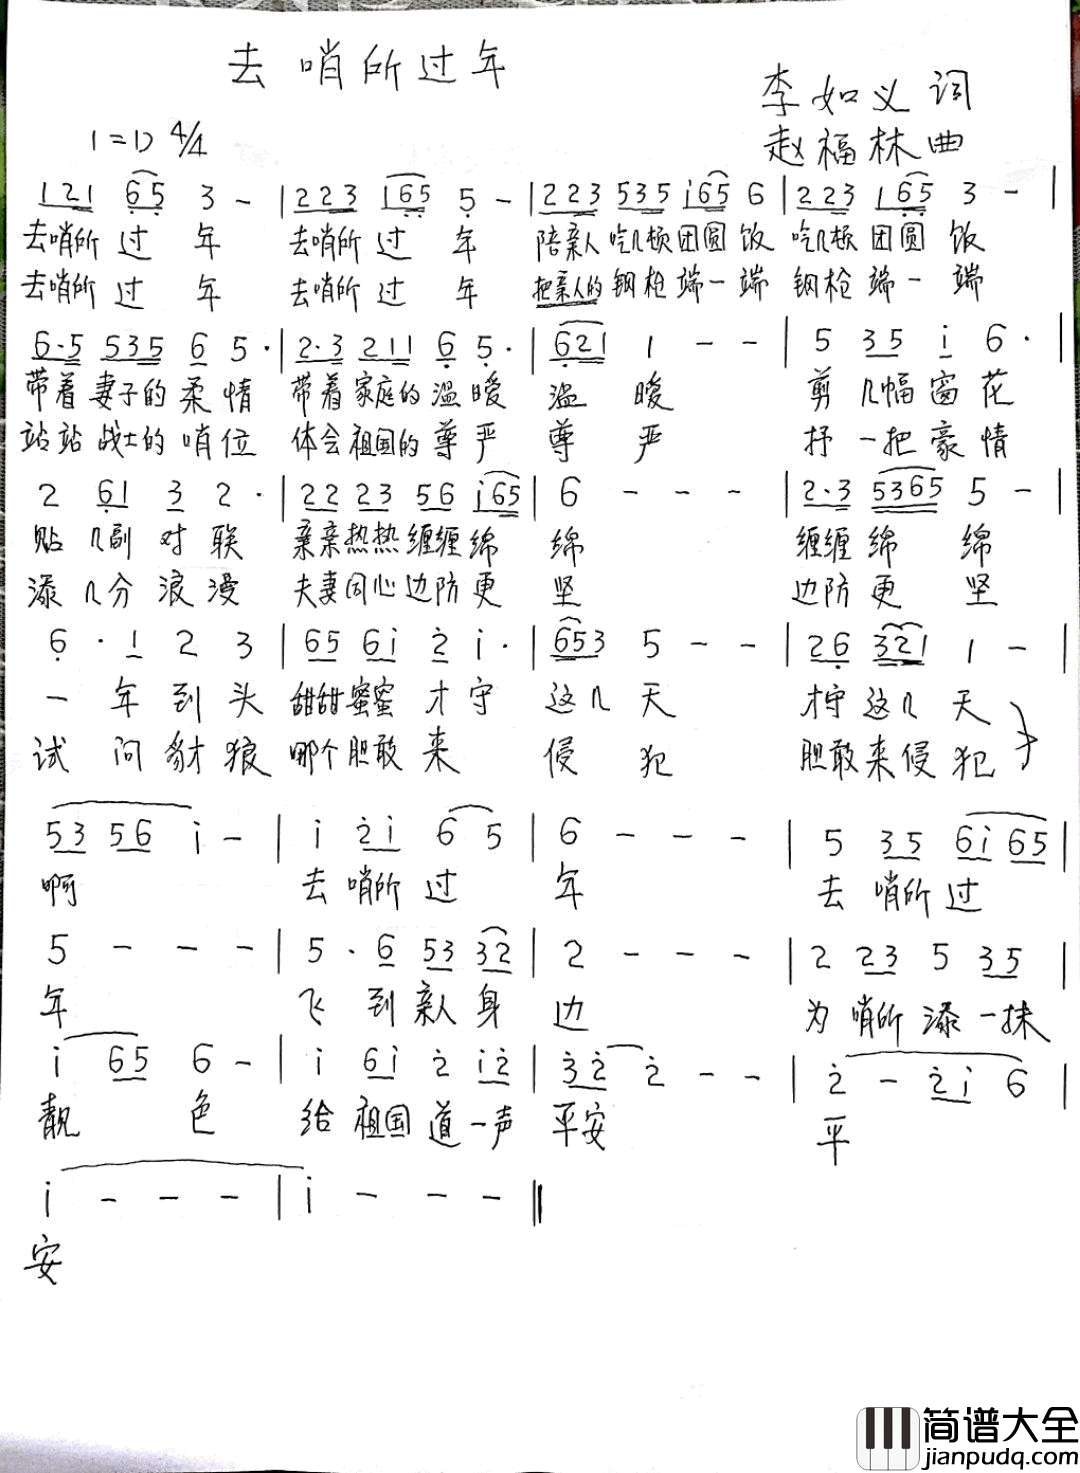 去哨所过年
李如义词
1=D 4/4
赵福林曲
1 2 1 6 5 3 - | 2 2 3 1 6 5 5 - | 2 2 3 5 3 5 i 6 5 6 | 2 2 3 1 6 5 3 - |
去哨所 过 年 去哨所 过 年 陪亲人 吃几顿 团圆 饭 吃几顿 团圆 饭
去哨所 过 年 去哨所 过 年 把亲人的 钢枪 端一端 钢枪 端一端
6·5 5 3 5 6 5· | 2·3 2 1 1 6 5· | 6 2 1 1 - - | 5 3 5 i 6· |
带着 妻子的 柔情 带着 家庭的 温暖 温 暖 剪 几幅 窗花
站站 战士的 哨位 体会 祖国的 尊严 尊 严 抒 一把 豪情
2 6 1 3 2· | 2 2 2 3 5 6 i 6 5 | 6 - - - | 2·3 5 3 6 5 5 - |
贴 几副 对联 亲亲热热 缠缠绵 绵 缠缠绵 绵
添 几分 浪漫 夫妻同心 边防更 坚 边防更 坚
6· 1 2 3 | 6 5 6 i 2 i· | 6 5 3 5 - - | 2 6 3 2 1 1 - |
一 年 到 头 甜甜蜜蜜 才 守 这几 天 才守 这几 天
试 问 豺 狼 哪个胆敢 来 侵 犯 胆敢来侵 犯
5 3 5 6 i - | i 2 i 6 5 | 6 - - - | 5 3 5 6 i 6 5 |
啊 去 哨所 过 年 去 哨所 过
5 - - - | 5· 6 5 3 3 2 | 2 - - - | 2 2 3 5 3 5 |
年 飞 到 亲人 身 边 为 哨所 添 一抹
i 6 5 6 - | i 6 i 2 i 2 | 3 2 2 - - | 2 - 2 i 6 |
靓 色 给 祖国 道 一声 平安 平
i - - - | i - - - ‖
安
简谱大全
jianpudq.com